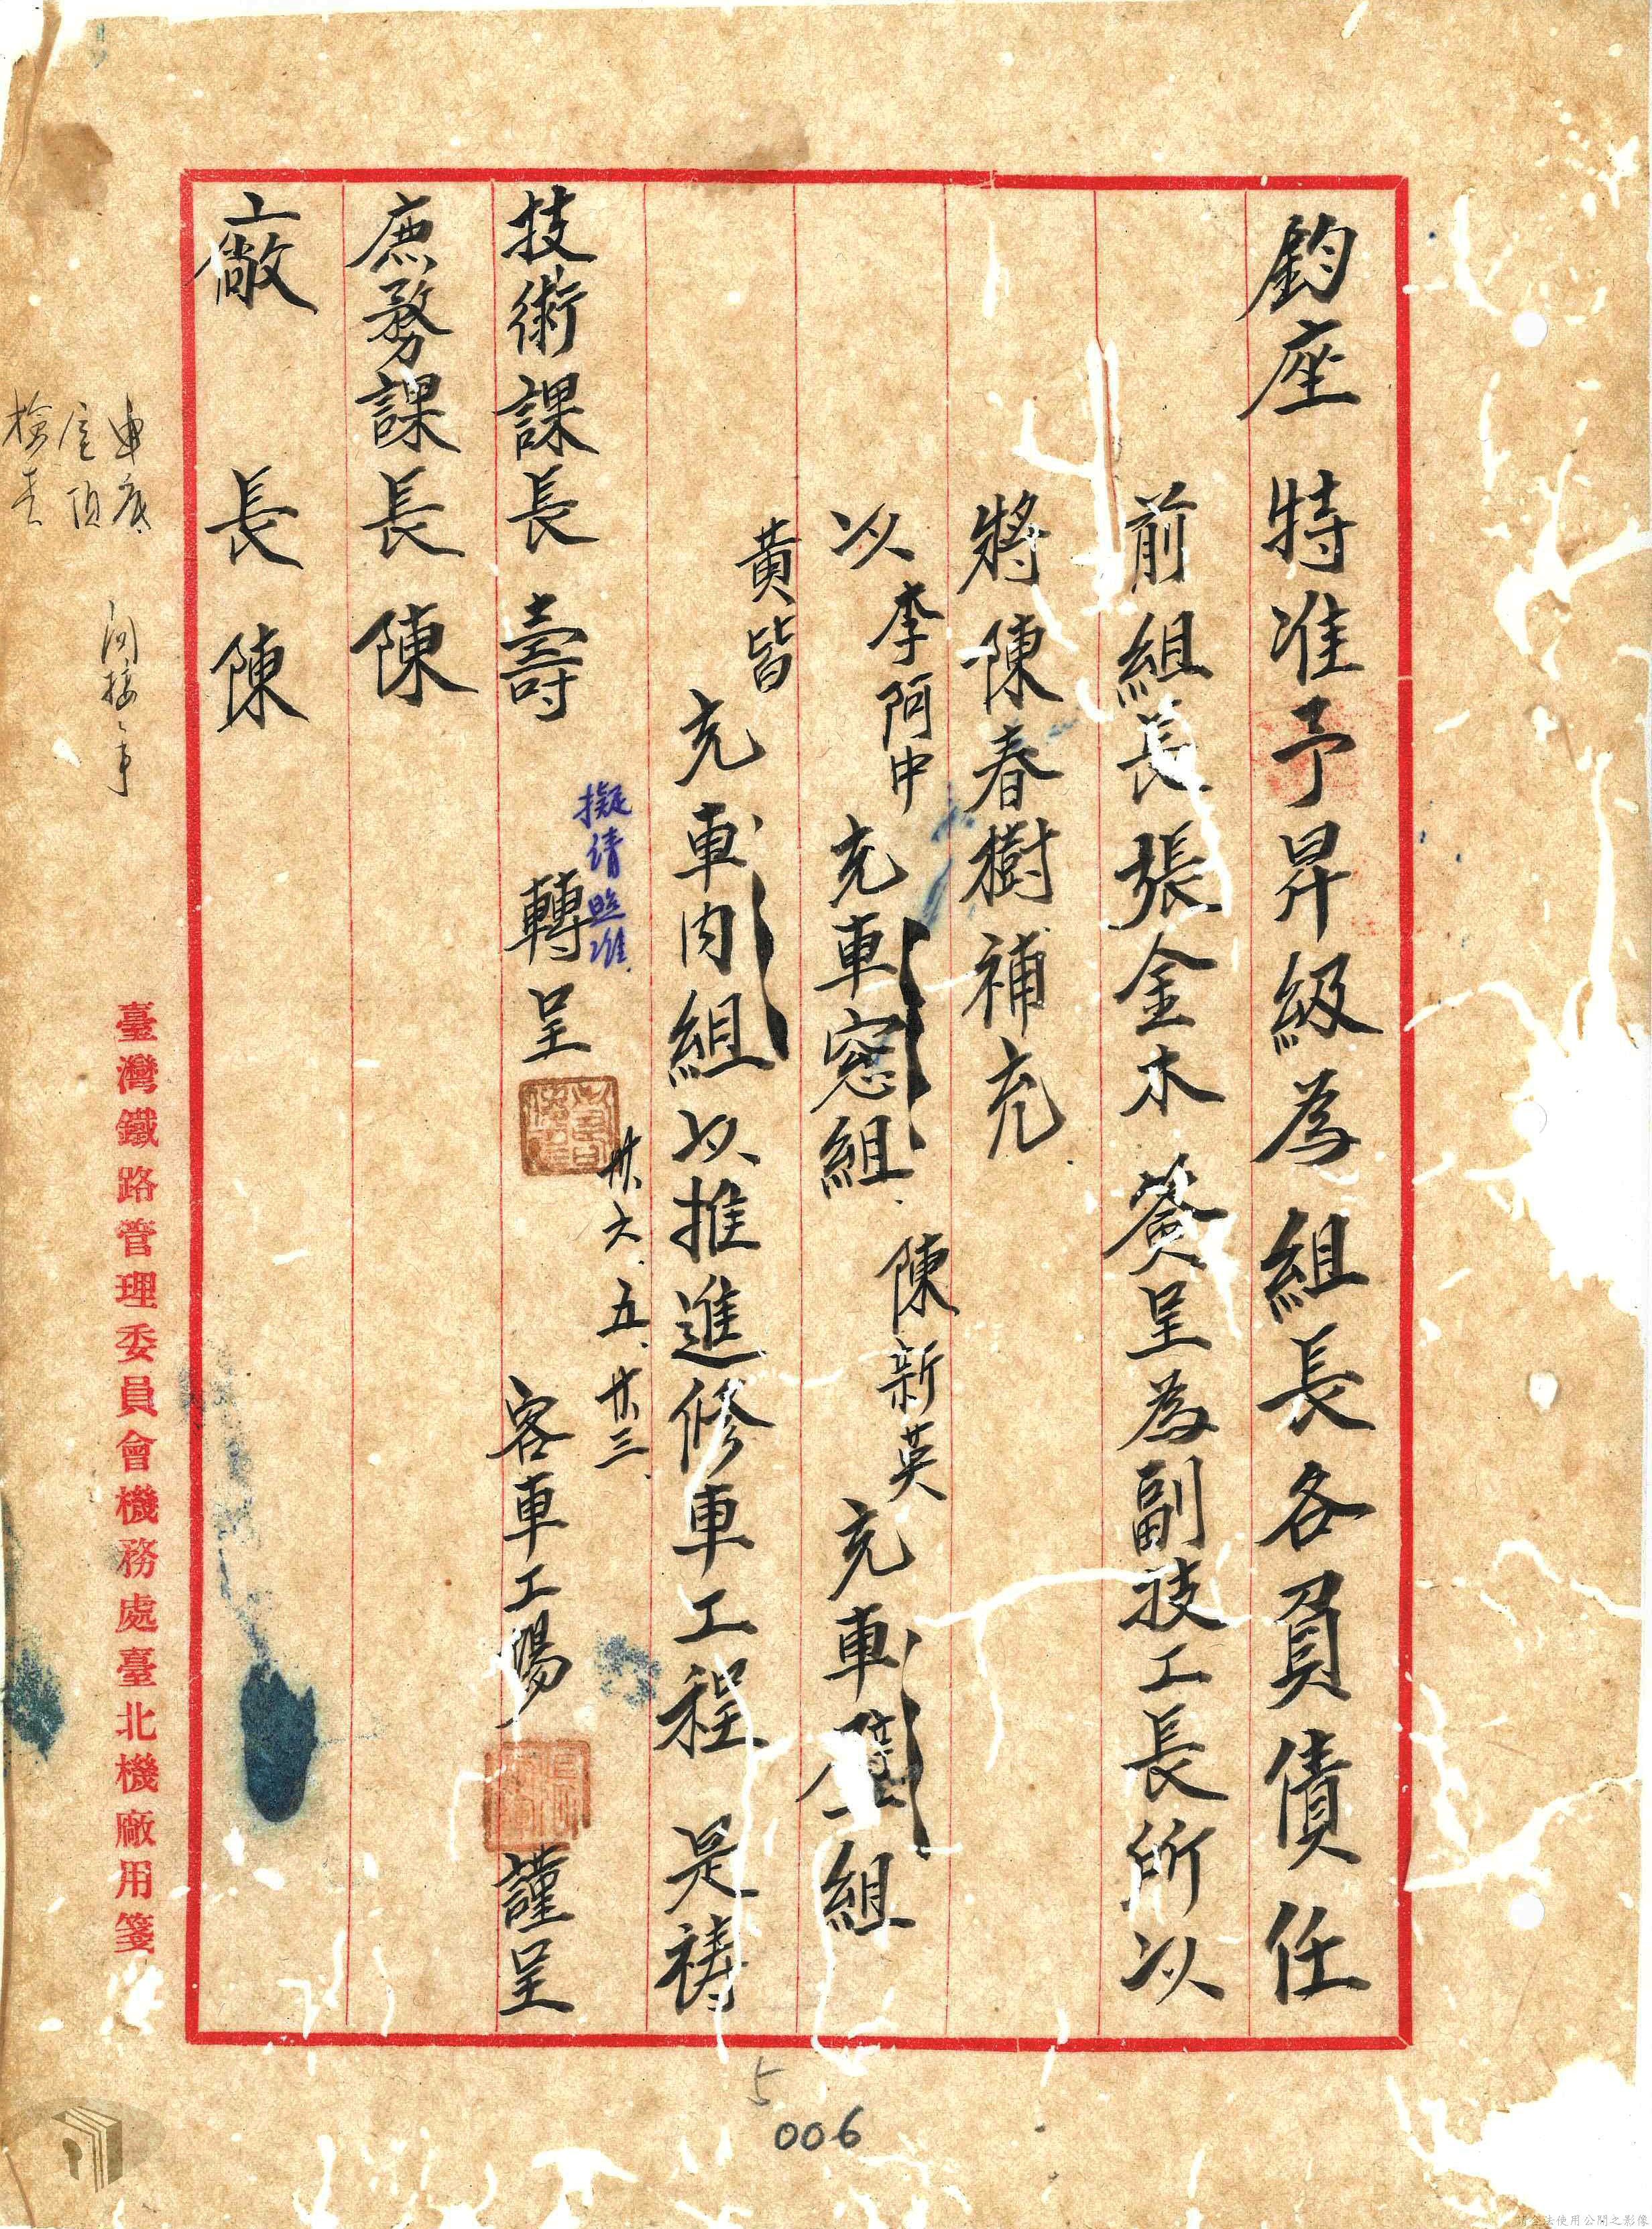 鈞座 特准予昇級為組長各負債任
前組長張金木 簽呈為副技工長所以
將陳春樹補充
以李阿中充車窓組 陳新英充車壁組
黃皆充車內組以推進修車工程 是禱
擬請照准
卅六、五、廿三、
技術課長 壽 轉呈 客車工場 謹呈
庶務課長 陳
廠 長 陳
臺灣鐵路管理委員會機務處臺北機廠用箋
檢查
5
006